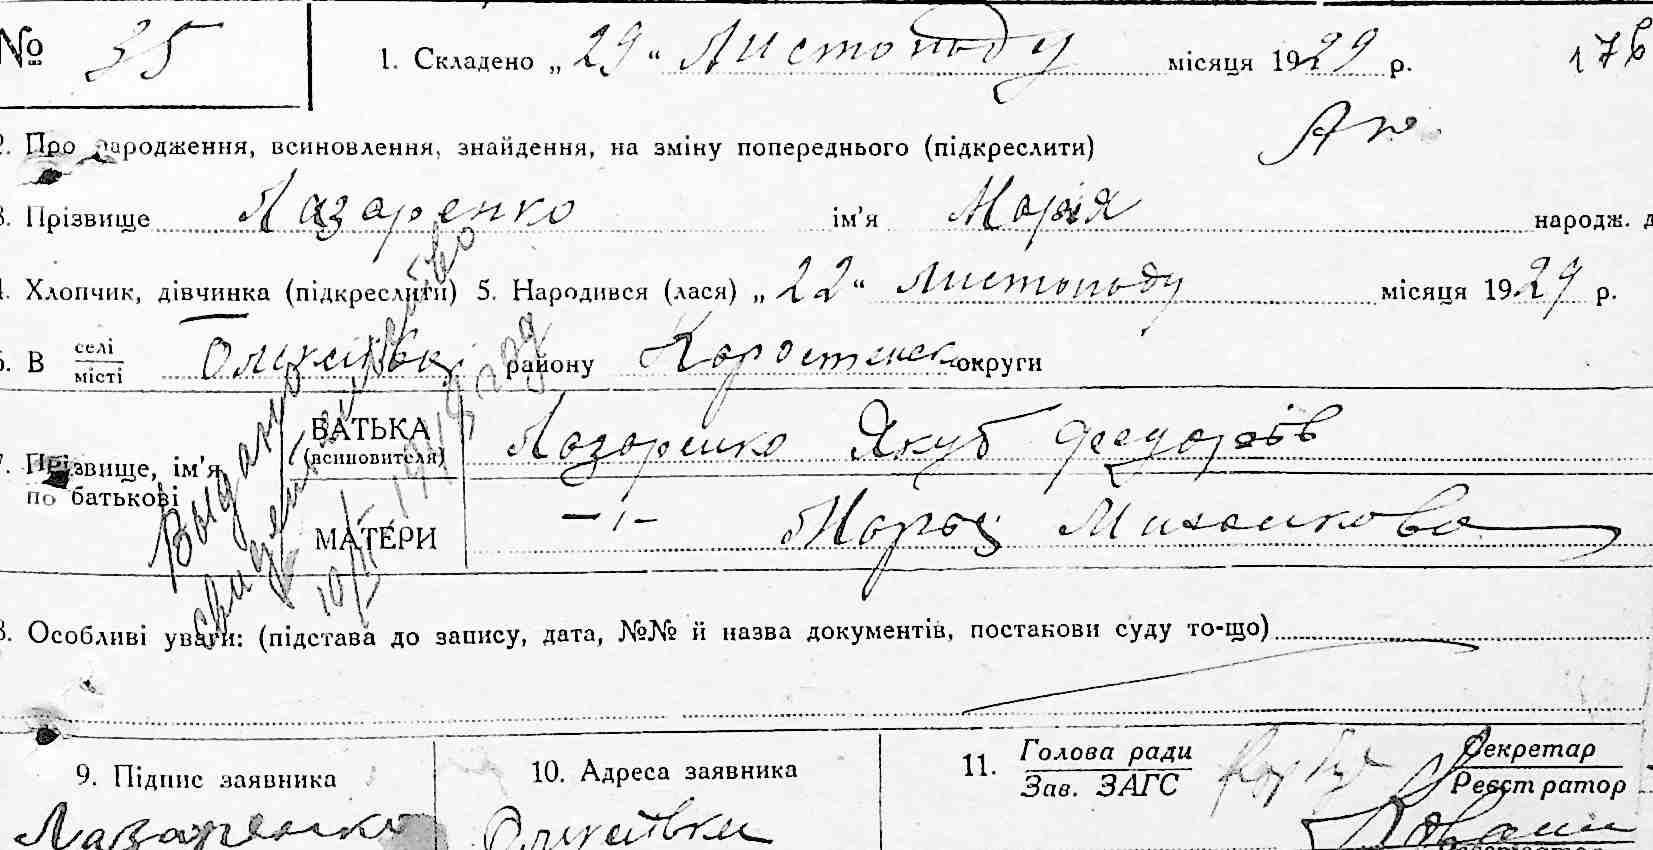 № 35
1. Складено „29“ Листопаду місяця 1929 р.
176
2. Про народження, всиновлення, знайдення, на зміну попереднього (підкреслити)
3. Прізвище Лазаренко ім’я Марія народж. д
4. Хлопчик, дівчинка (підкреслити) 5. Народився (лася) „22“ листопаду місяця 1929 р.
6. В селі/місті Олексіївці району Коростенськ округи
7. Прізвище, ім’я по батькові
БАТЬКА (всиновителя) Лазаренко Якуб Федорів
МАТЕРИ —〃— Марія Михайлова
Выдано свидетельство
8. Особливі уваги: (підстава до запису, дата, №№ й назва документів, постанови суду то-що)
9. Підпис заявника
Лазаренко
10. Адреса заявника
Олексіївка
11. Голова ради / Зав. ЗАГС
Секретар / Реєстратор